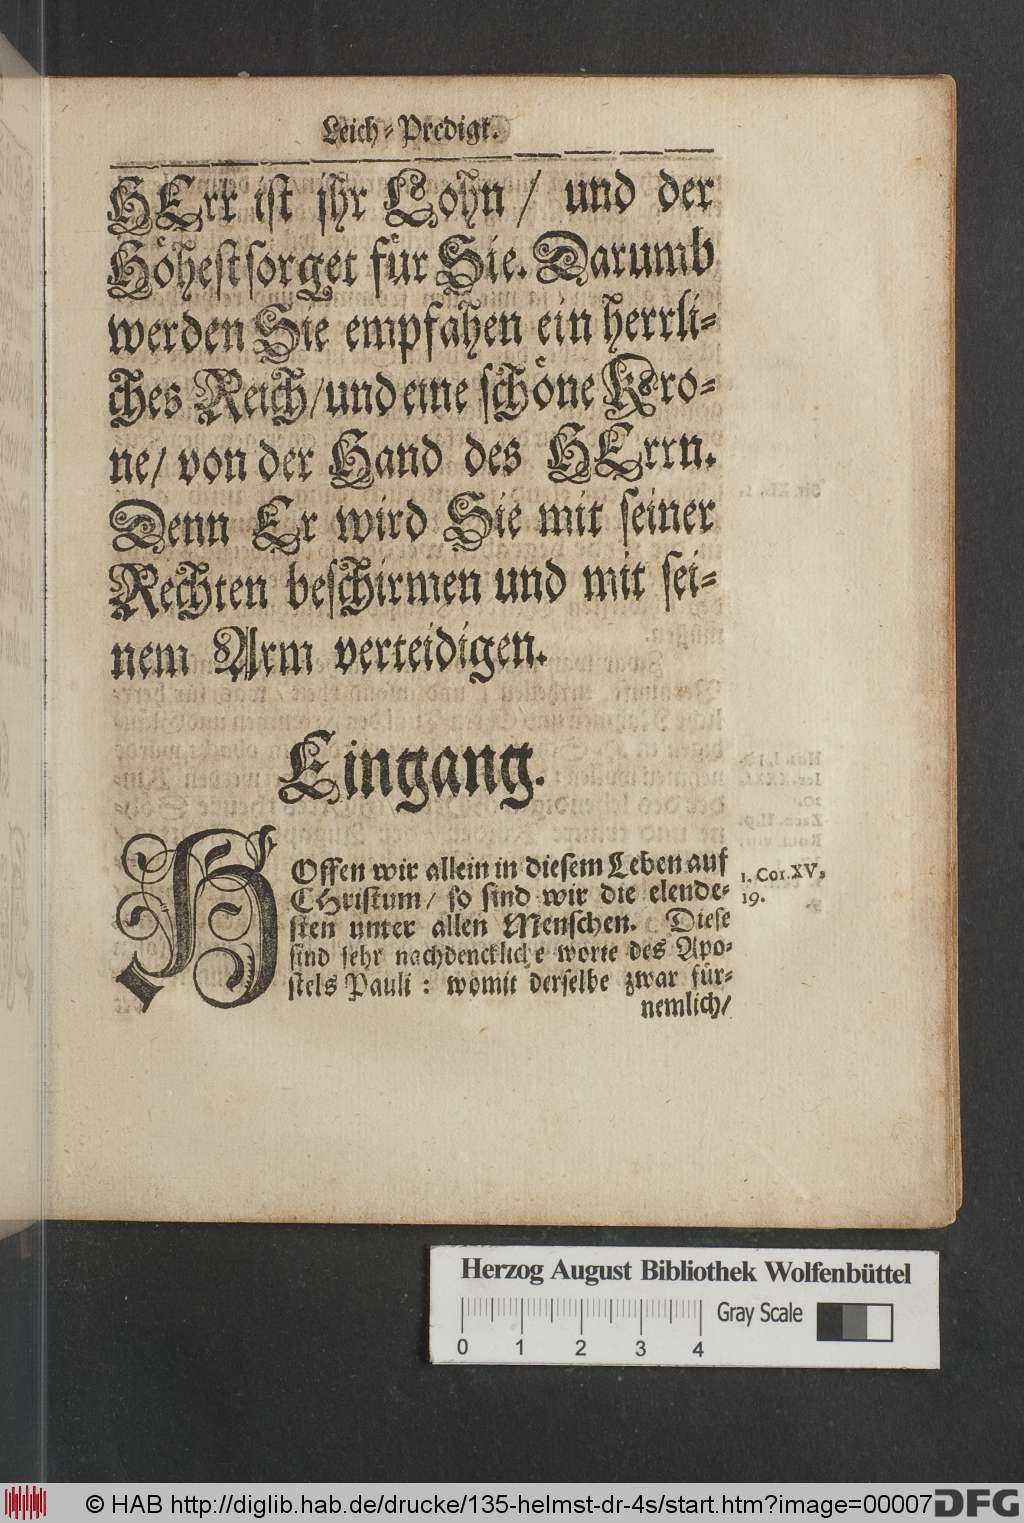 Leich-Predigt.
HErr ist jhr Lohn / und der
Höhest sorget für Sie. Darumb
werden Sie empfahen ein herrli-
ches Reich / und eine schöne Kro-
ne / von der Hand des HErrn.
Denn Er wird Sie mit seiner
Rechten beschirmen und mit sei-
nem Arm verteidigen.
Eingang.
HOffen wir allein in diesem Leben auf
CHristum / so sind wir die elende-
sten unter allen Menschen. Diese
sind sehr nachdenckliche worte des Apo-
stels Pauli : womit derselbe zwar für-
nemlich /
1. Cor. XV,
19.
Herzog August Bibliothek Wolfenbüttel
Gray Scale
0 1 2 3 4
© HAB http://diglib.hab.de/drucke/135-helmst-dr-4s/start.htm?image=00007
DFG